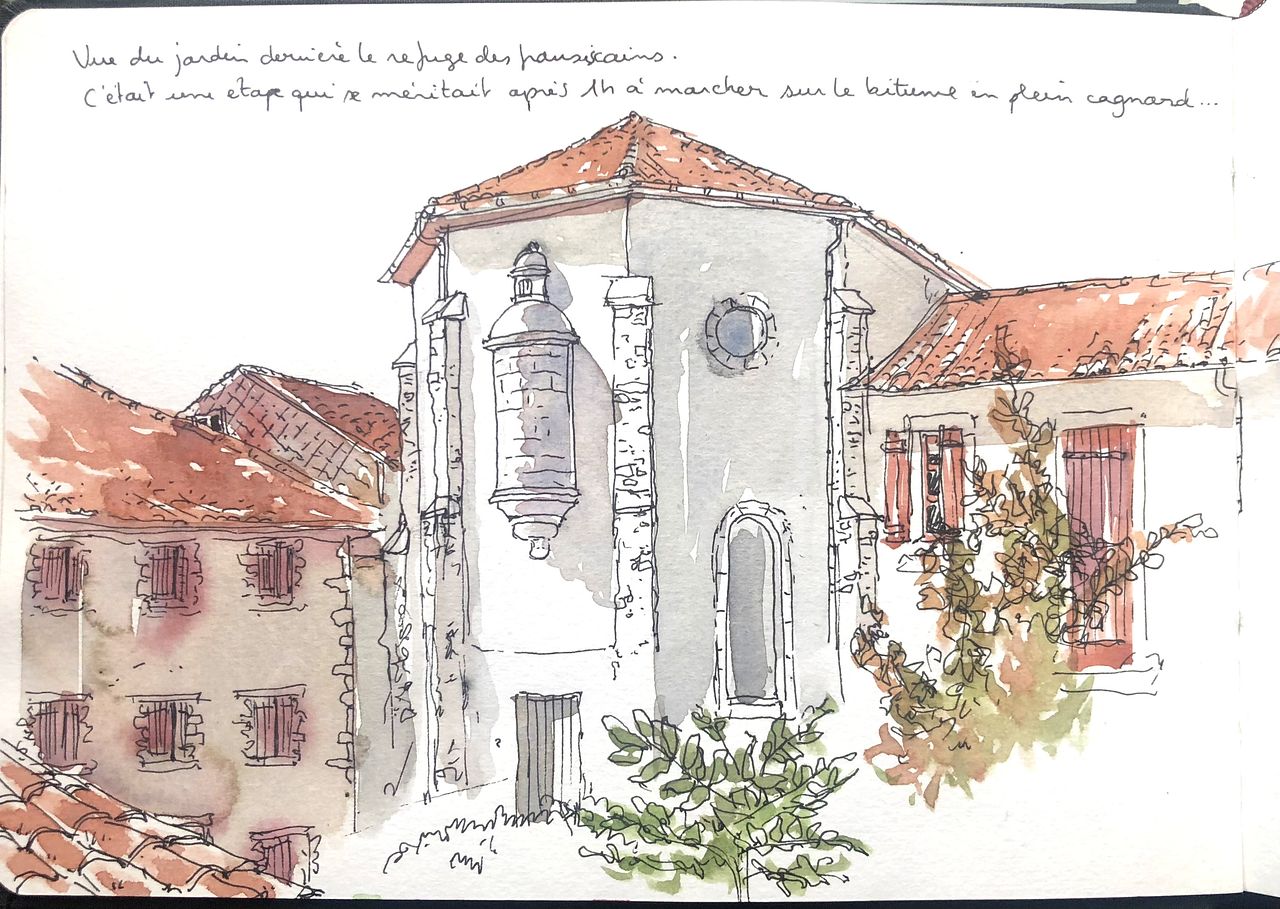 Vue du jardin derrière le refuge des fransiscains.
C'était une etape qui se méritait après 1h à marcher sur le bitume en plein cagnard...